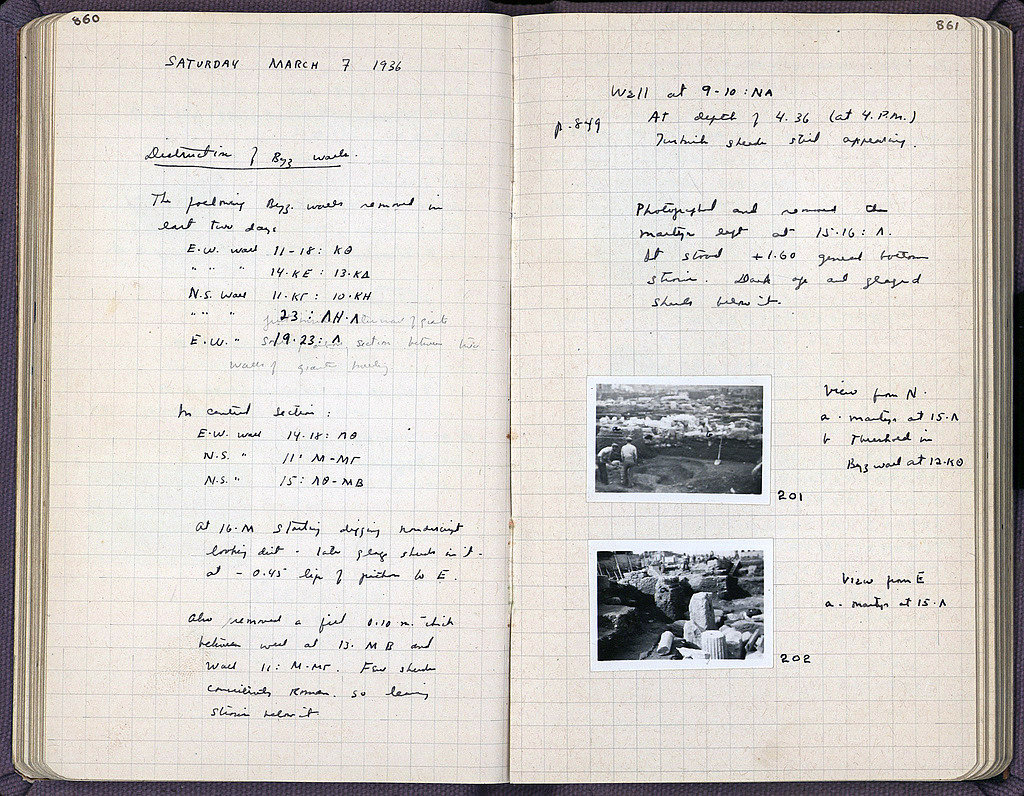 860
SATURDAY MARCH 7 1936
Destruction of Byz walls.
The following Byz. walls removed in
last two days
E.W. wall 11-18: ΚΘ
" " " 14·ΚΕ : 13·ΚΔ
N.S. Wall 11·ΚΓ : 10·ΚΗ
" " " 23 : ΛΗ·Λ
E.W. " 19·23: Λ
section between two
walls of
In central section:
E.W. wall 14·18: ΛΘ
N.S. " 11: Μ-ΜΓ
N.S. " 15: ΛΘ-ΜΒ
At 16·Μ starting digging nondescript
looking dirt - late glaze sherds in it -
at - 0.45 lip of pithos to E.
Also removed a fill 0.10 m. thick
between wall at 13· ΜΒ and
wall 11: Μ·ΜΓ. Few sherds
Roman. so leaving
below it.
861
Well at 9-10: ΝΑ
p. 849
At depth of 4.36 (at 4. P.M.)
Turkish sherds still appearing.
Photographed and removed the
martyr left at 15·16: Λ.
It stood +1.60 general bottom
Dark age and glazed
sherds below it.
View from N.
a · martyr at 15·Λ
b Threshold in
Byz wall at 12·ΚΘ
201
View from E
a · martyr at 15·Λ
202